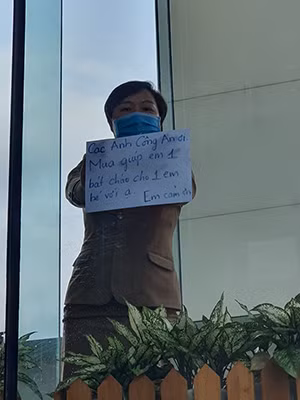 Các Anh Công An ơi
Mua giúp em 1
bát cháo cho 1 em
bé với ạ
Em cảm ơn